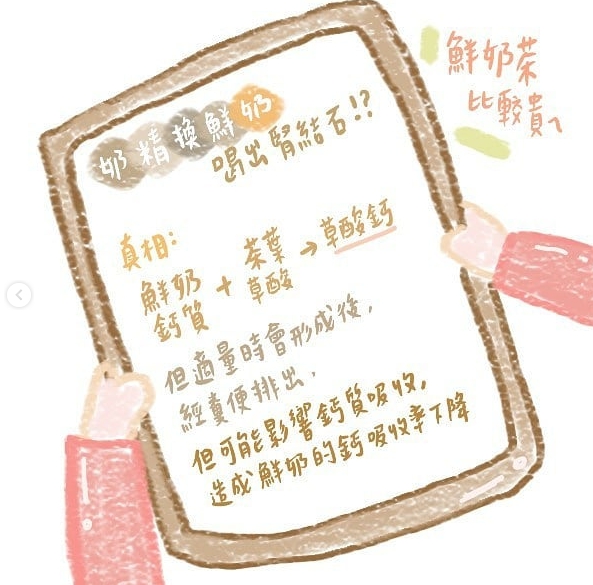 鮮奶茶
比較貴
奶精換鮮奶
喝出腎結石!?
真相:
鮮奶 + 茶葉 → 草酸鈣
鈣質 草酸
但適量時會形成後,
經糞便排出,
但可能影響鈣質吸收,
造成鮮奶的鈣吸收率下降